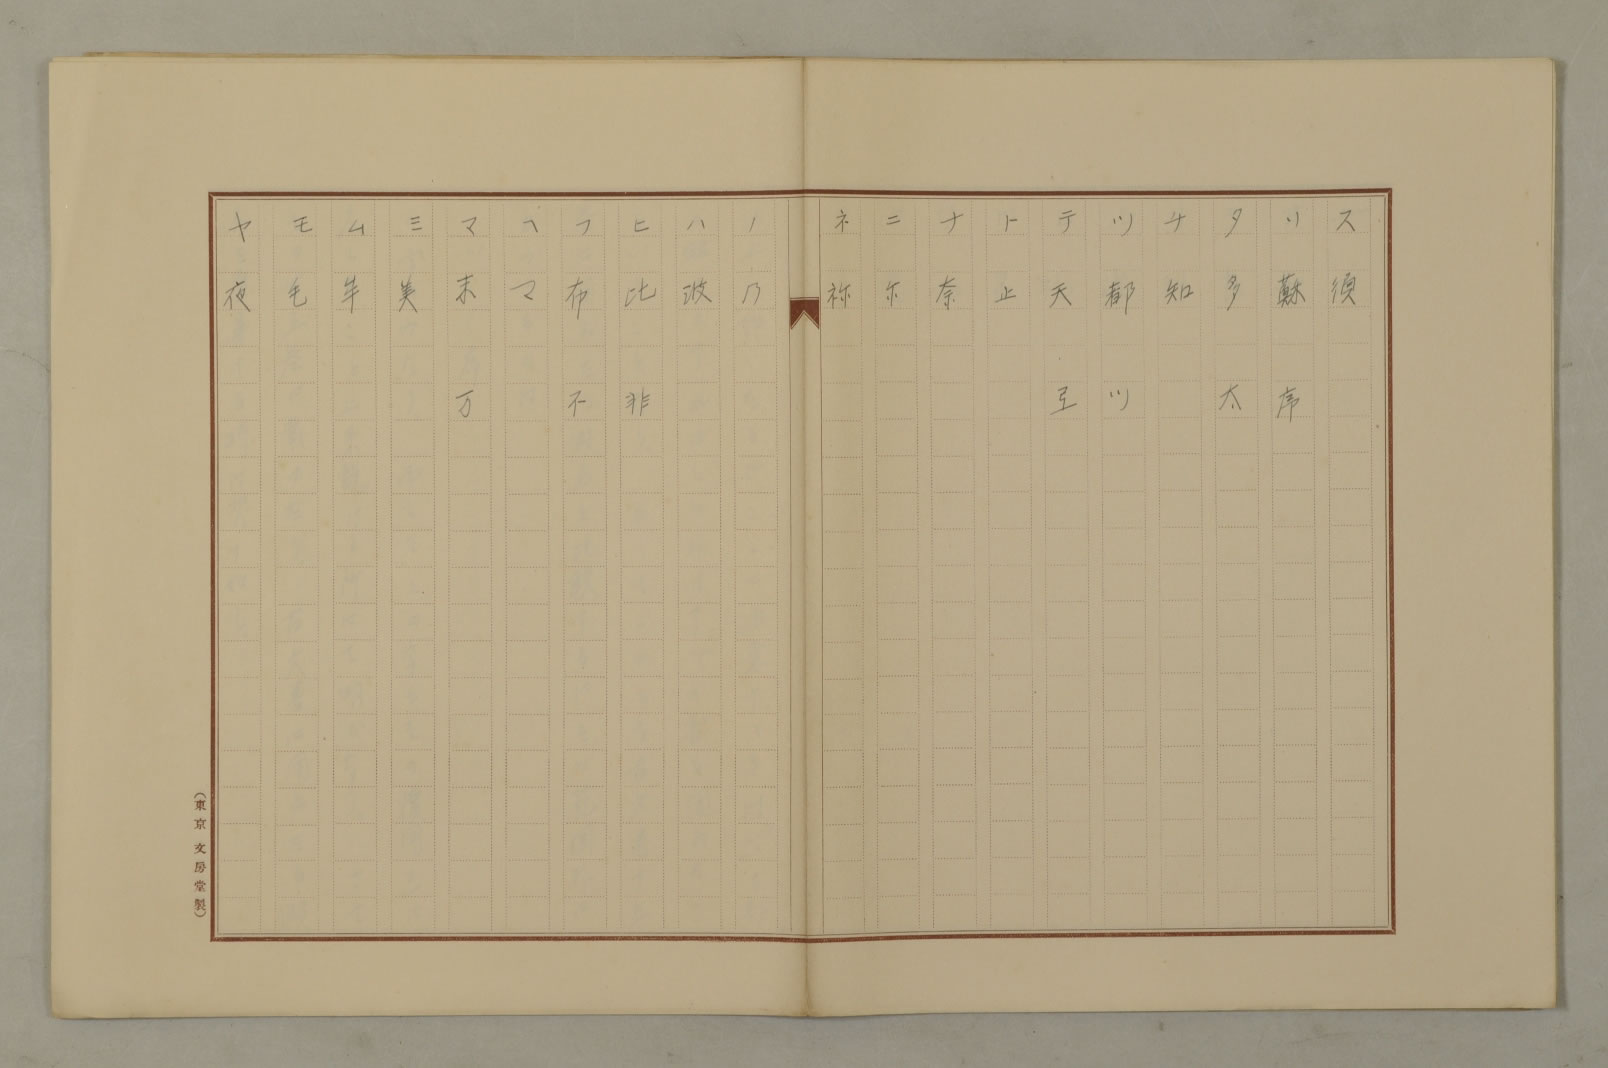 ス 須
ソ 蘇 席
タ 多 太
チ 知
ツ 都 ツ
テ 天 弖
ト 止
ナ 奈
ニ 尓
ネ 祢
ノ 乃
ハ 波
ヒ 比 非
フ 布 不
ヘ マ
マ 末 万
ミ 美
ム 牟
モ 毛
ヤ 夜
(東京 文房堂製)